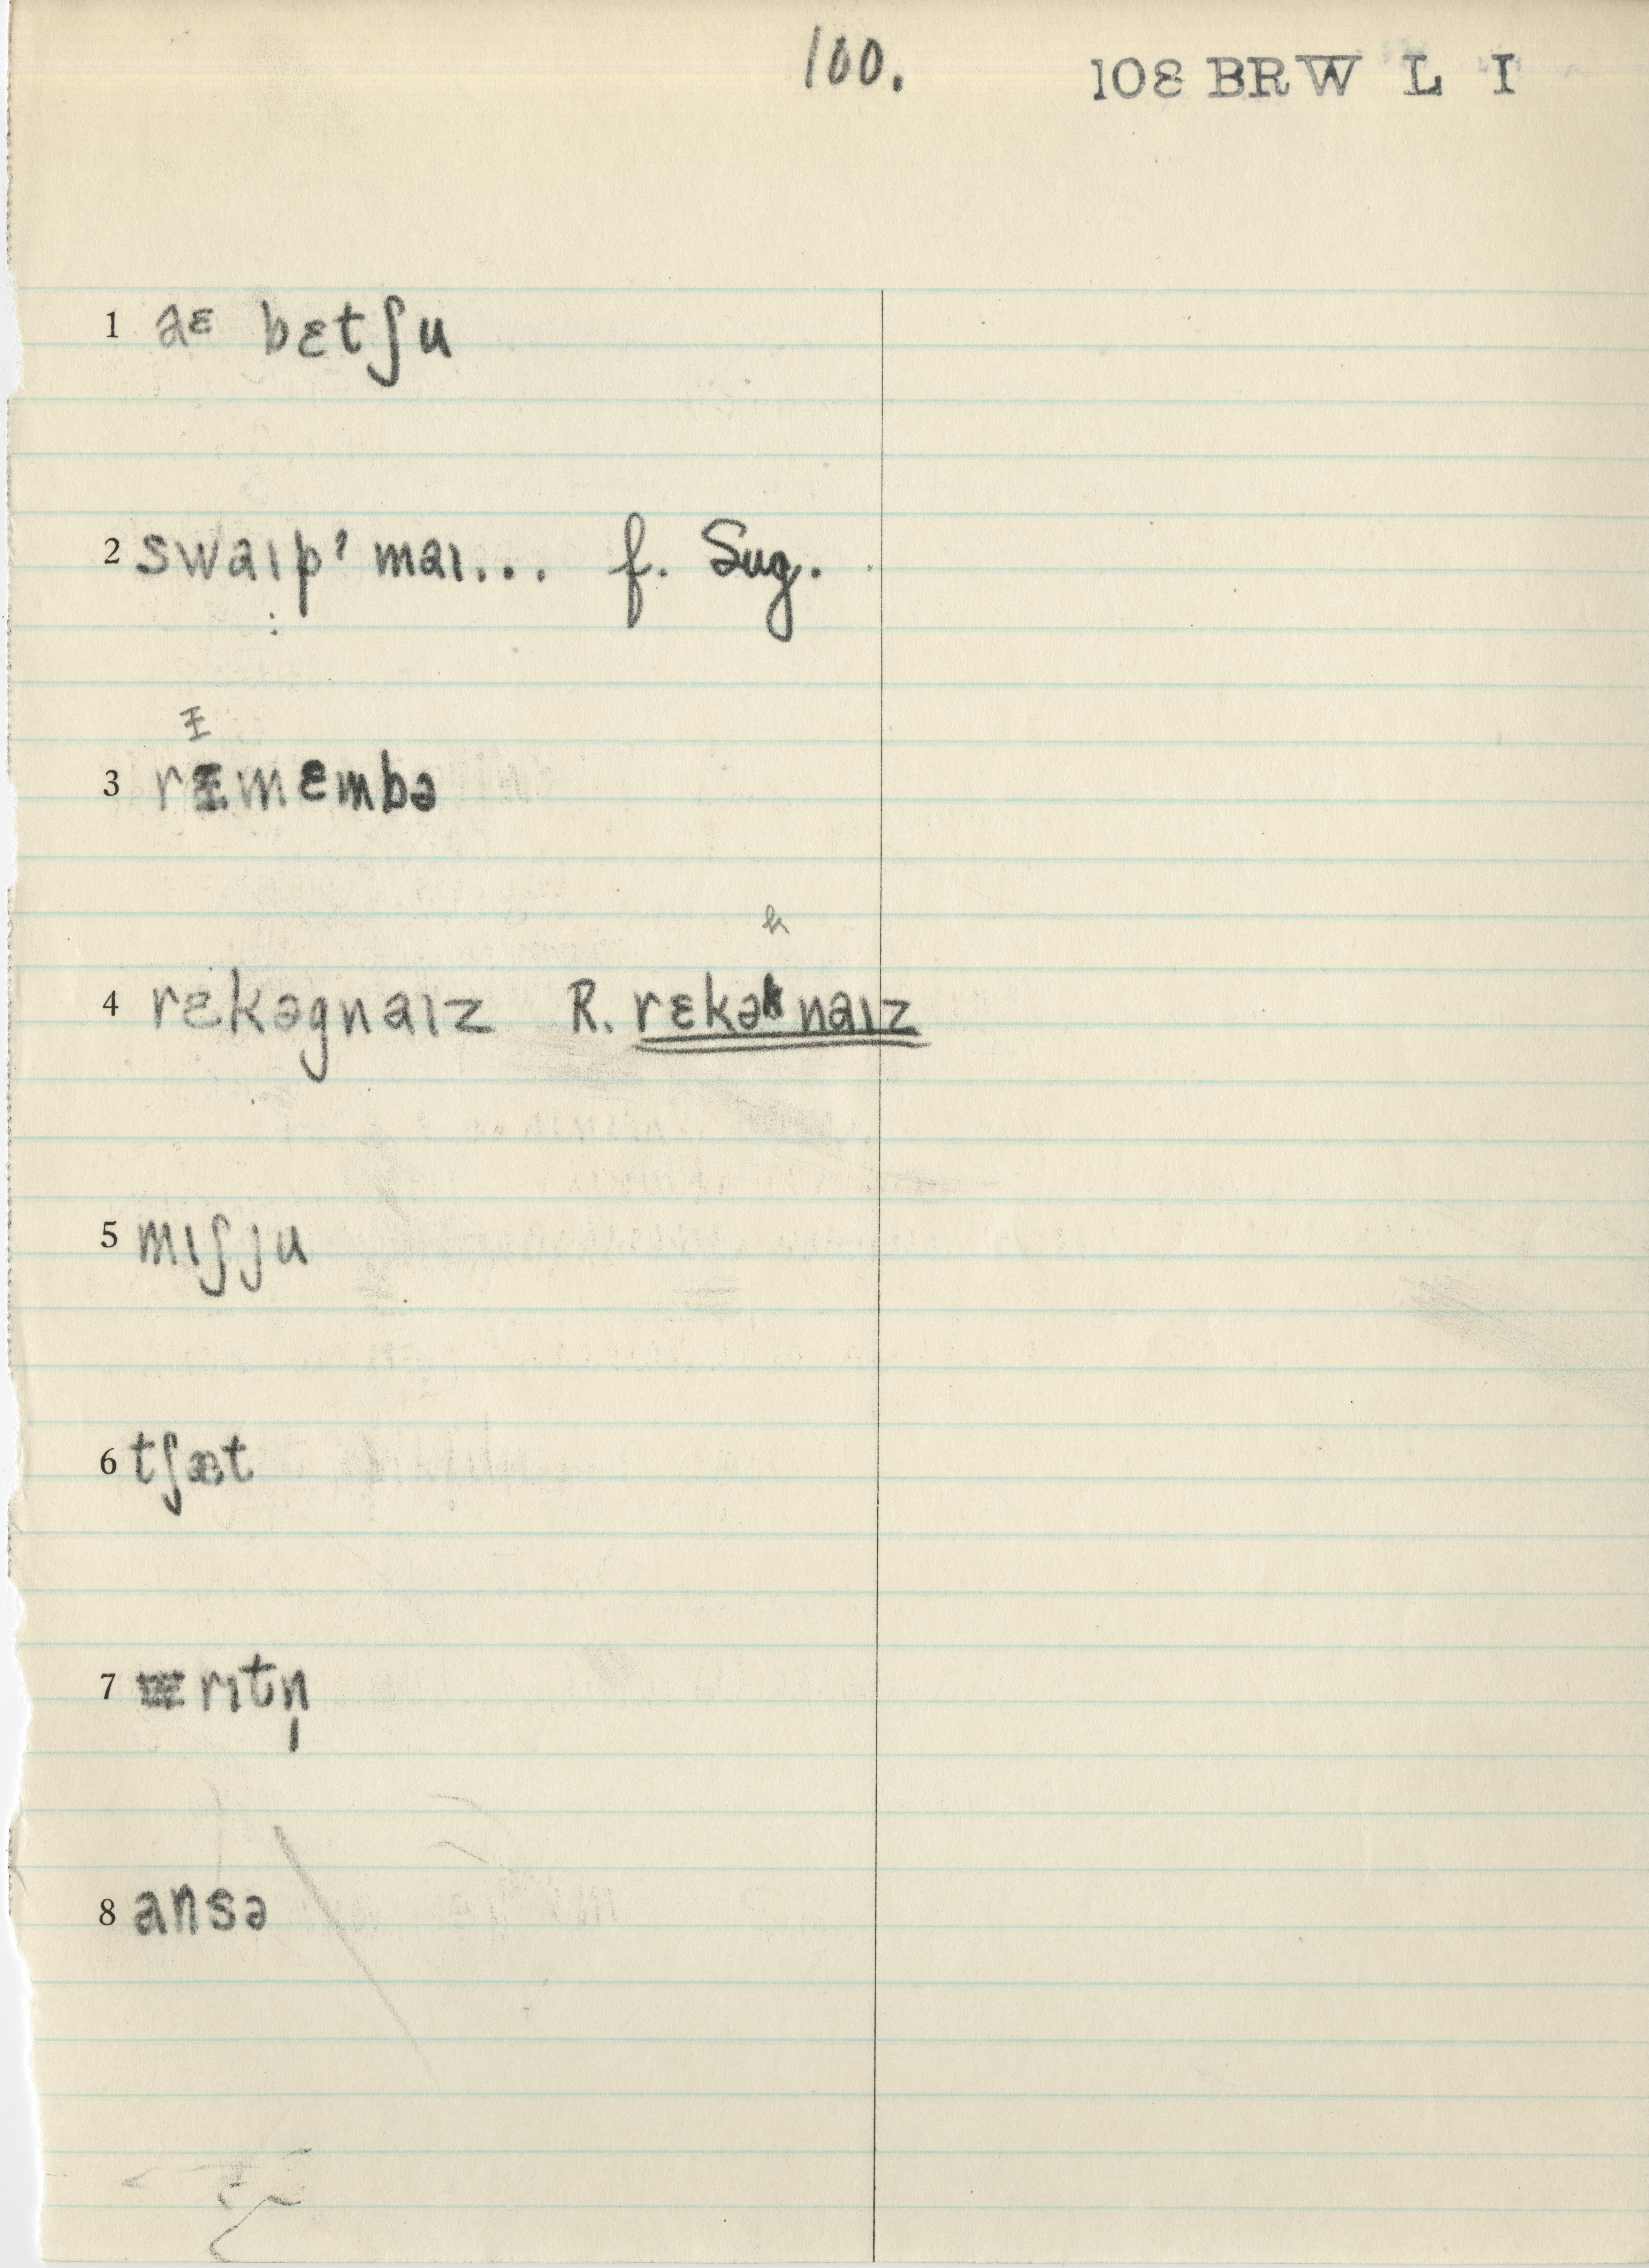 100. 108 BRW L I
1 aᵋ bɛtʃu
2 swaɪpˀ maɪ... f. Sug.
ɨ
3 rɨmɛmbə
k
4 rɛkəgnaɪz R. rɛkəknaɪz
5 mɪʃju
6 tʃæt
7 rɪtn̩
8 ansə